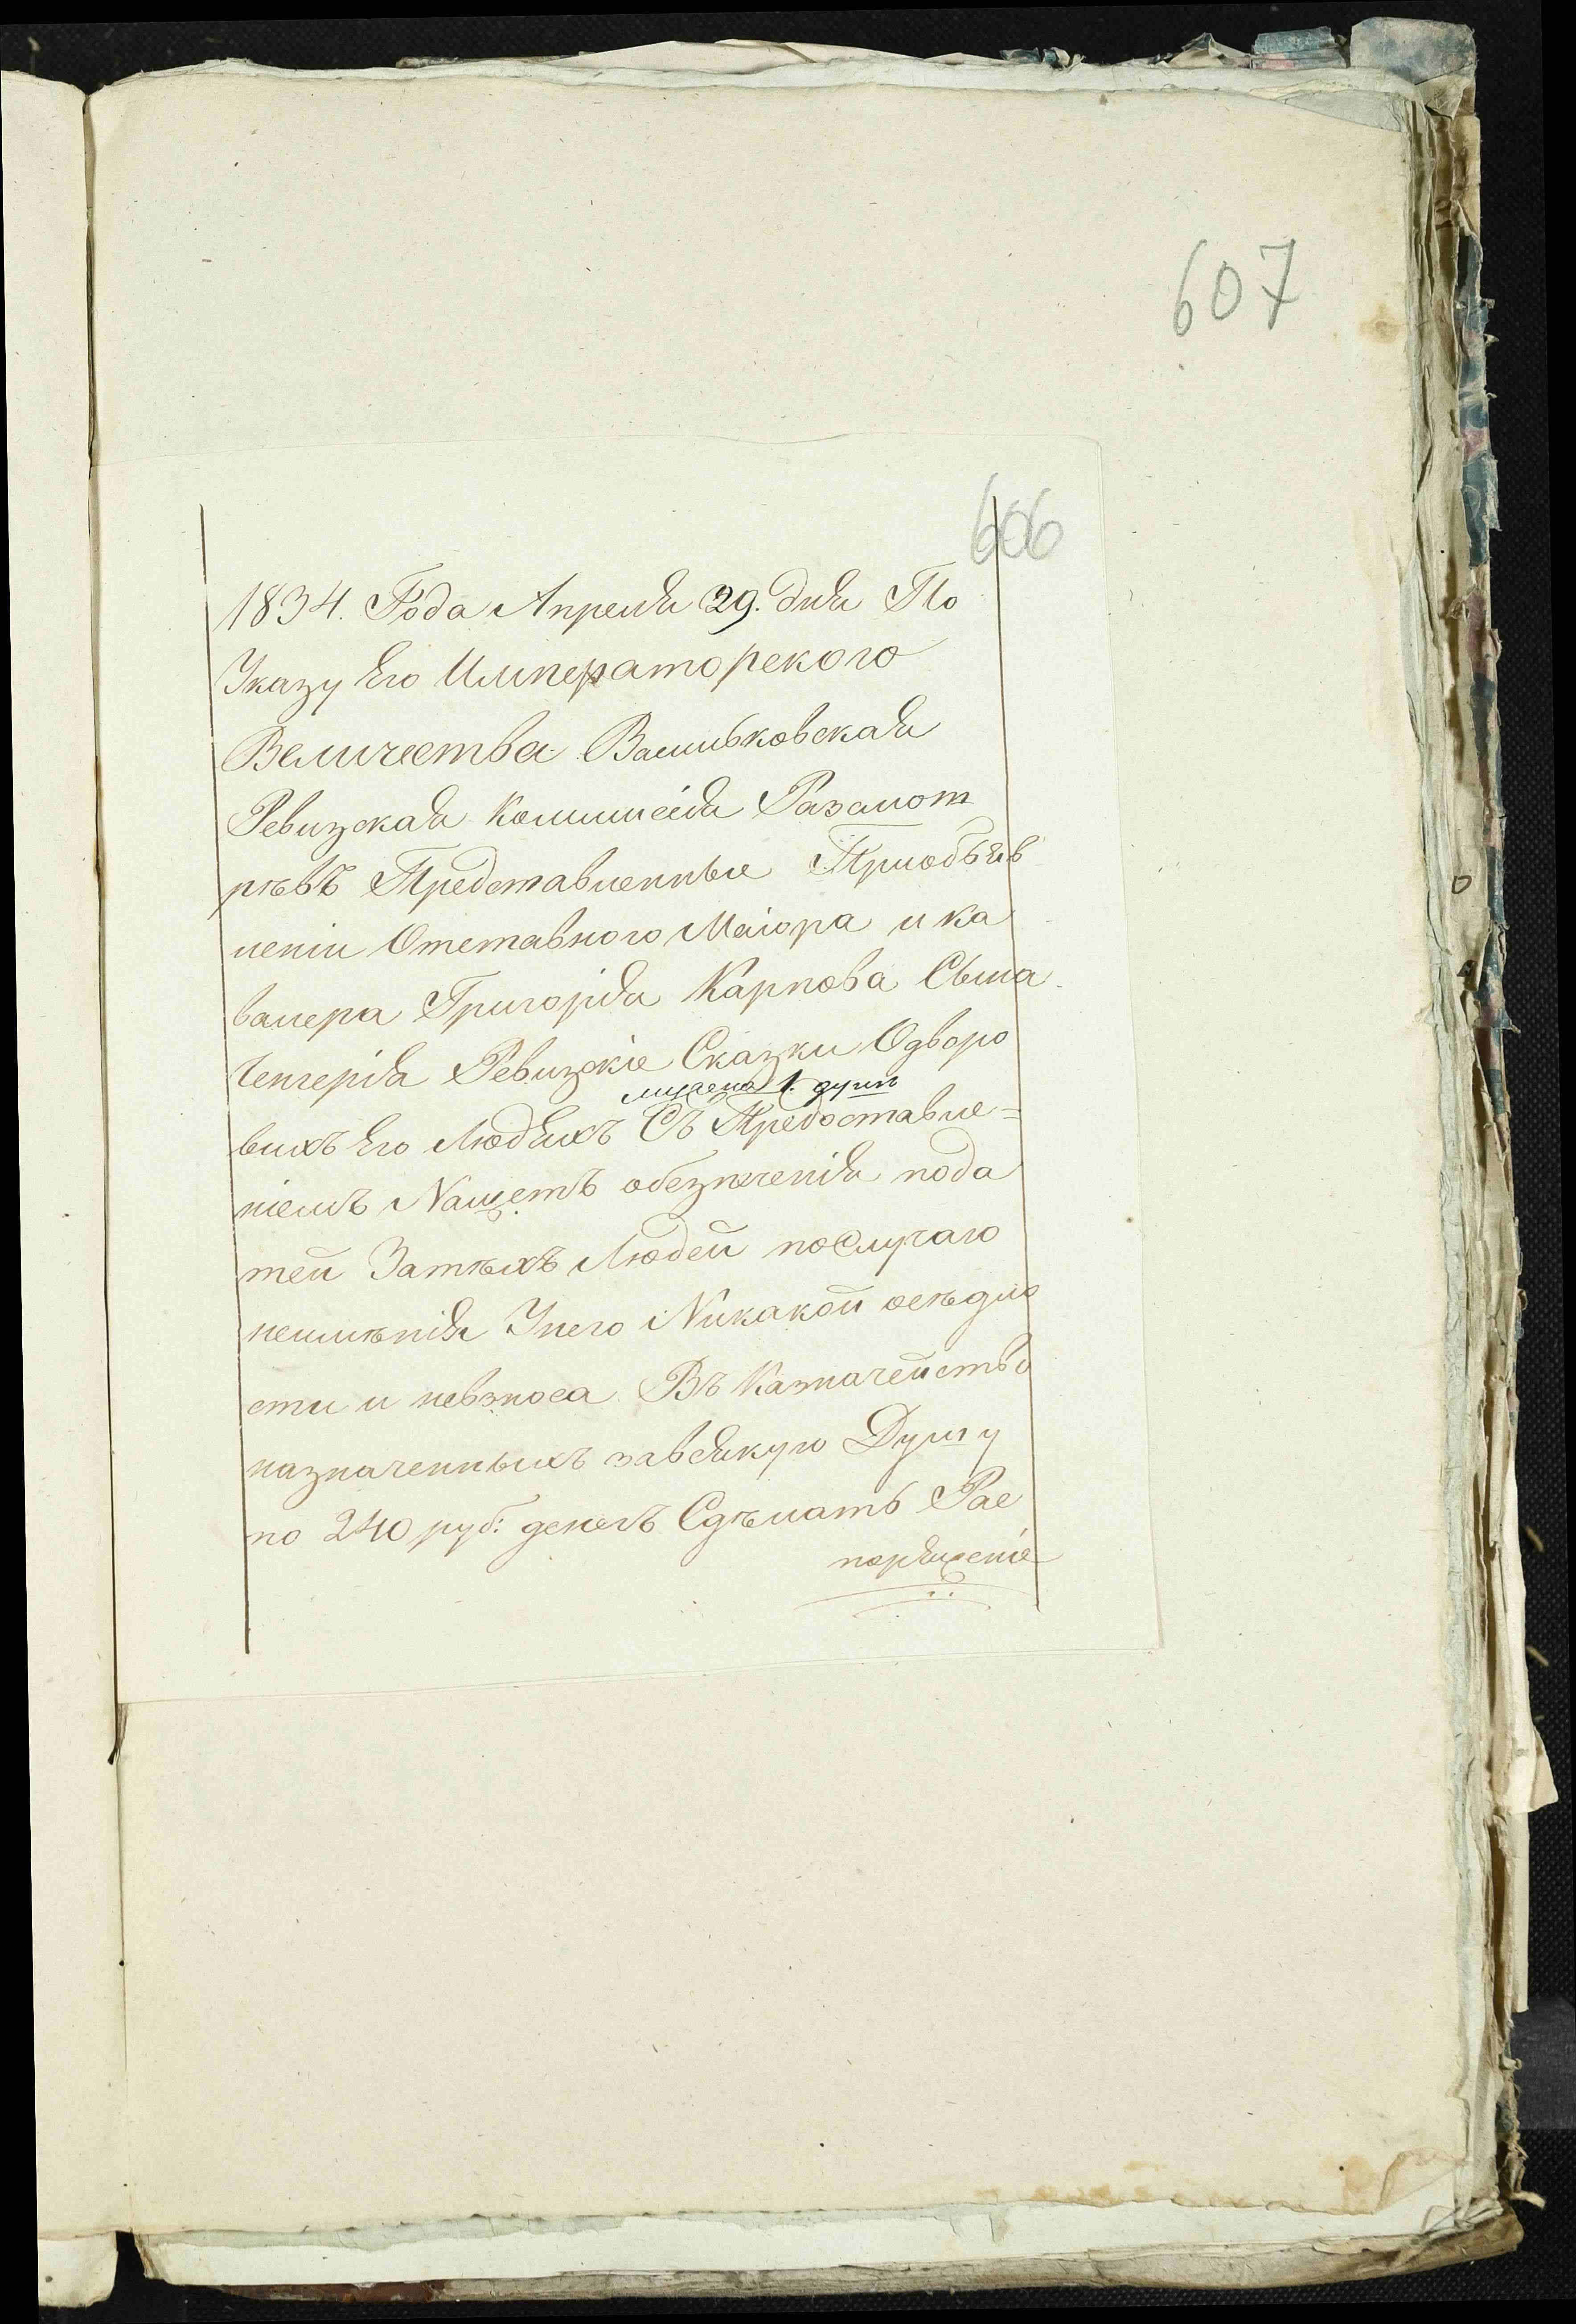 607
606
1834. Года Апреля 29. дня По
Указу Его Императорского
Величества Васильковская
Ревизская Коммисія Разсмот
рѣвъ Представленные Приобъяв
леніи Отставного Маіора и ка
валера Григорія Карпова Сына
Ченгерія Ревизскіе Сказки Одворо
1. душѣ
выхъ Его Людяхъ Съ Предоставле=
ніемъ Нащетъ обезпеченія пода
тей Затѣхъ Людей послучаю
неимѣнія Унего Никакой осѣдло
сти и невзноса Въ Казначейство
назначенныхъ завсякую Душу
по 240 руб: денегъ Сдѣлать Рас
поряженіе